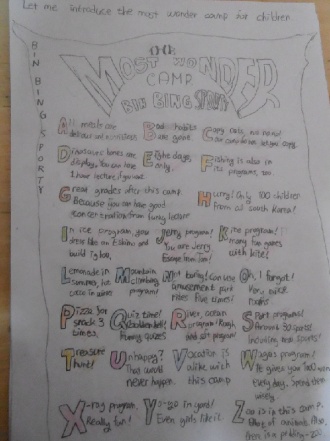 Let me introduce the most wonder camp for children.
BIN BING SPORTY
THE
MOST WONDER
CAMP
BIN BING SPORTY
All meals are
delicious and
Bad habits
are gone
Carry only, no
Dinosaurs bones are
display. You can have
1 hour lecture if you want.
Eight days,
only.
Fishing is also in
its programs, too.
Great grades after this camp.
Because you can have good
concentration from funky lecture
Hurry! Only 100 children
from all south Korea!
In ice program, you
dress like an Eskimo and
build Igloo,
Jerry program?
You are Jerry
Escape from Tom!
Kite program!
many fun games
with kite!
Lemonade in
summer, hot
cocoa in winter
Mountain
climbing
program!
Not boring! Can use
amusement park
rides five times!
Oh, I forgot!
Pizza for
snack 3
times.
Quiz time!
Funny quizes
River, ocean
program! Raft
and
program!
Sport programs!
Around 30 sports!
Including new sports!
Treasure
Hunt!
Unhappy?
That would
never happen.
Vacation is
alike with
this camp
program.
It gives you 1000 won
Everyday. Spend them
wisely
X-ray program.
Really fun!
Yo-yo in yard!
Even girls like it.
Zoo is in this camp.